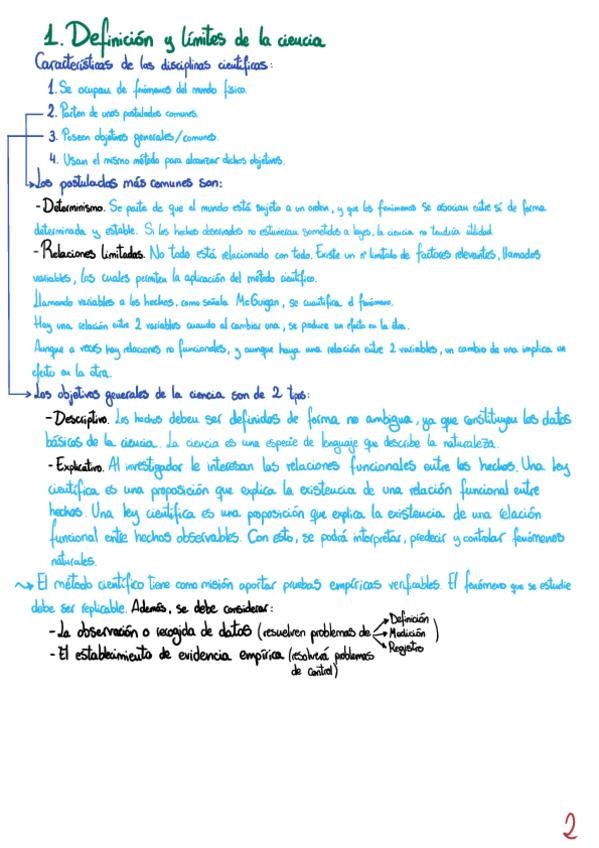 1. Definición y límites de la ciencia
Características de las disciplinas científicas:
1. Se ocupan de fenómenos del mundo físico.
2. Parten de unos postulados comunes.
3. Poseen objetivos generales/comunes.
4. Usan el mismo método para alcanzar dichos objetivos.
Los postulados más comunes son:
- Determinismo. Se parte de que el mundo está sujeto a un orden, y que los fenómenos se asocian entre sí de forma
determinada y estable. Si los hechos observados no estuvieran sometidos a leyes, la ciencia no tendría utilidad
- Relaciones limitadas. No todo está relacionado con todo. Existe un nº limitado de factores relevantes, llamados
variables, las cuales permiten la aplicación del método científico.
Llamando variables a los hechos, como señala McGuigan, se cuantifica el fenómeno.
Hay una relación entre 2 variables cuando al cambiar una, se produce un efecto en la otra.
Aunque a veces hay relaciones no funcionales, y aunque haya una relación entre 2 variables, un cambio de una implica un
efecto en la otra.
Los objetivos generales de la ciencia son de 2 tipos:
- Descriptivo. Los hechos deben ser definidos de forma no ambigua, ya que constituyen los datos
básicos de la ciencia. La ciencia es una especie de lenguaje que describe la naturaleza.
- Explicativo. Al investigador le interesan las relaciones funcionales entre los hechos. Una ley
científica es una proposición que explica la existencia de una relación funcional entre
hechos. Una ley científica es una proposición que explica la existencia de una relación
funcional entre hechos observables. Con esto, se podrá interpretar, predecir y controlar fenómenos
naturales.
El método científico tiene como misión aportar pruebas empíricas verificables. El fenómeno que se estudie
debe ser replicable. Además, se debe considerar:
- La observación o recogida de datos (resuelven problemas de Definición
Medición )
Registro
- El establecimiento de evidencia empírica (resolverá problemas
de control)
2